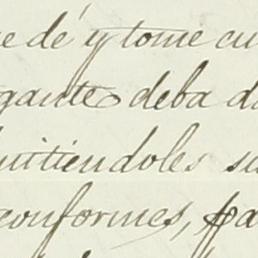 e dé y tome cu
gante deba d
uitiendoles su
conformes, pa